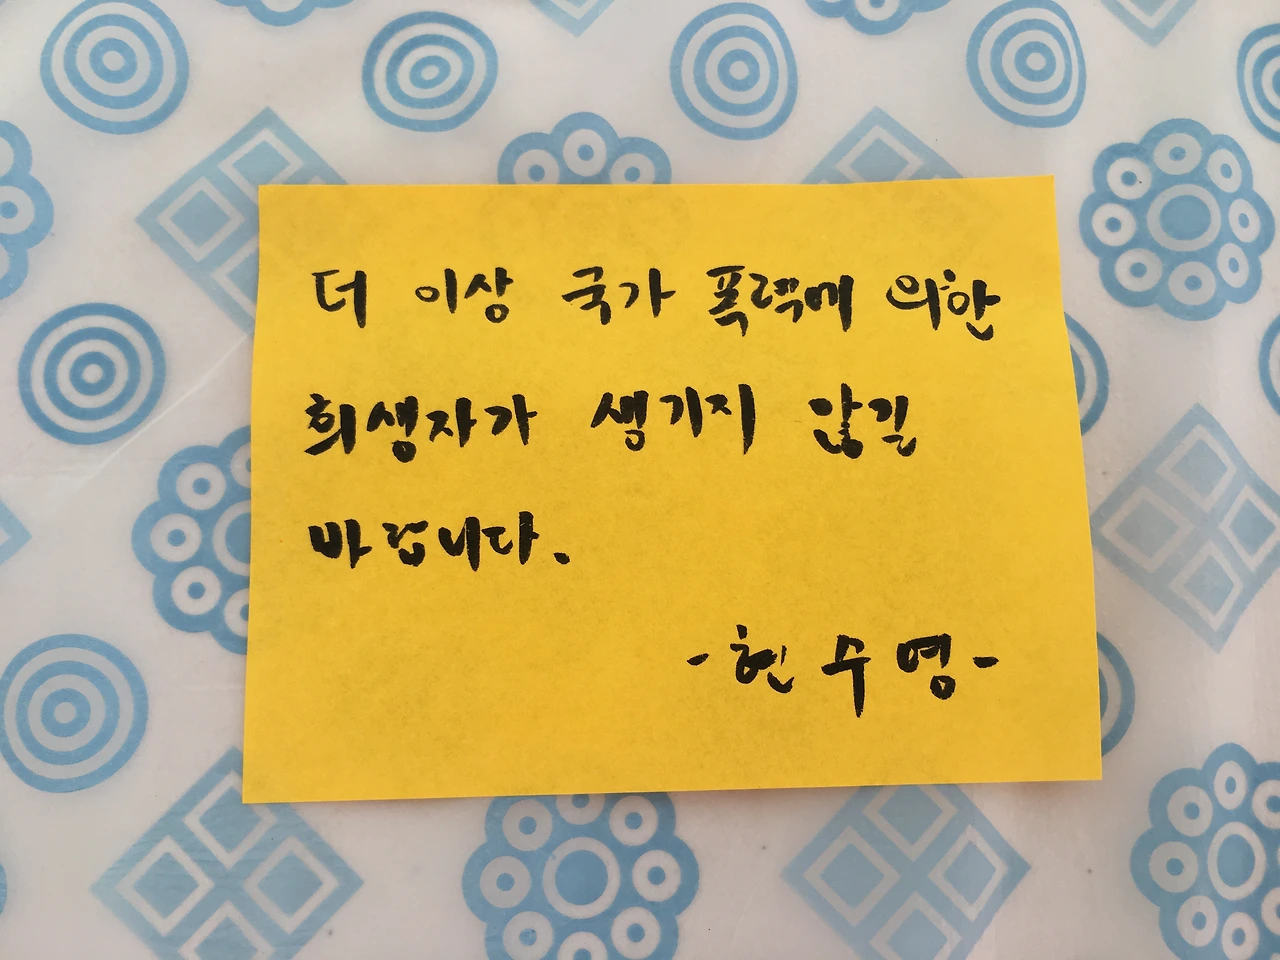 더 이상 국가 폭력에 의한
희생자가 생기지 않길
바랍니다.
-현수영-